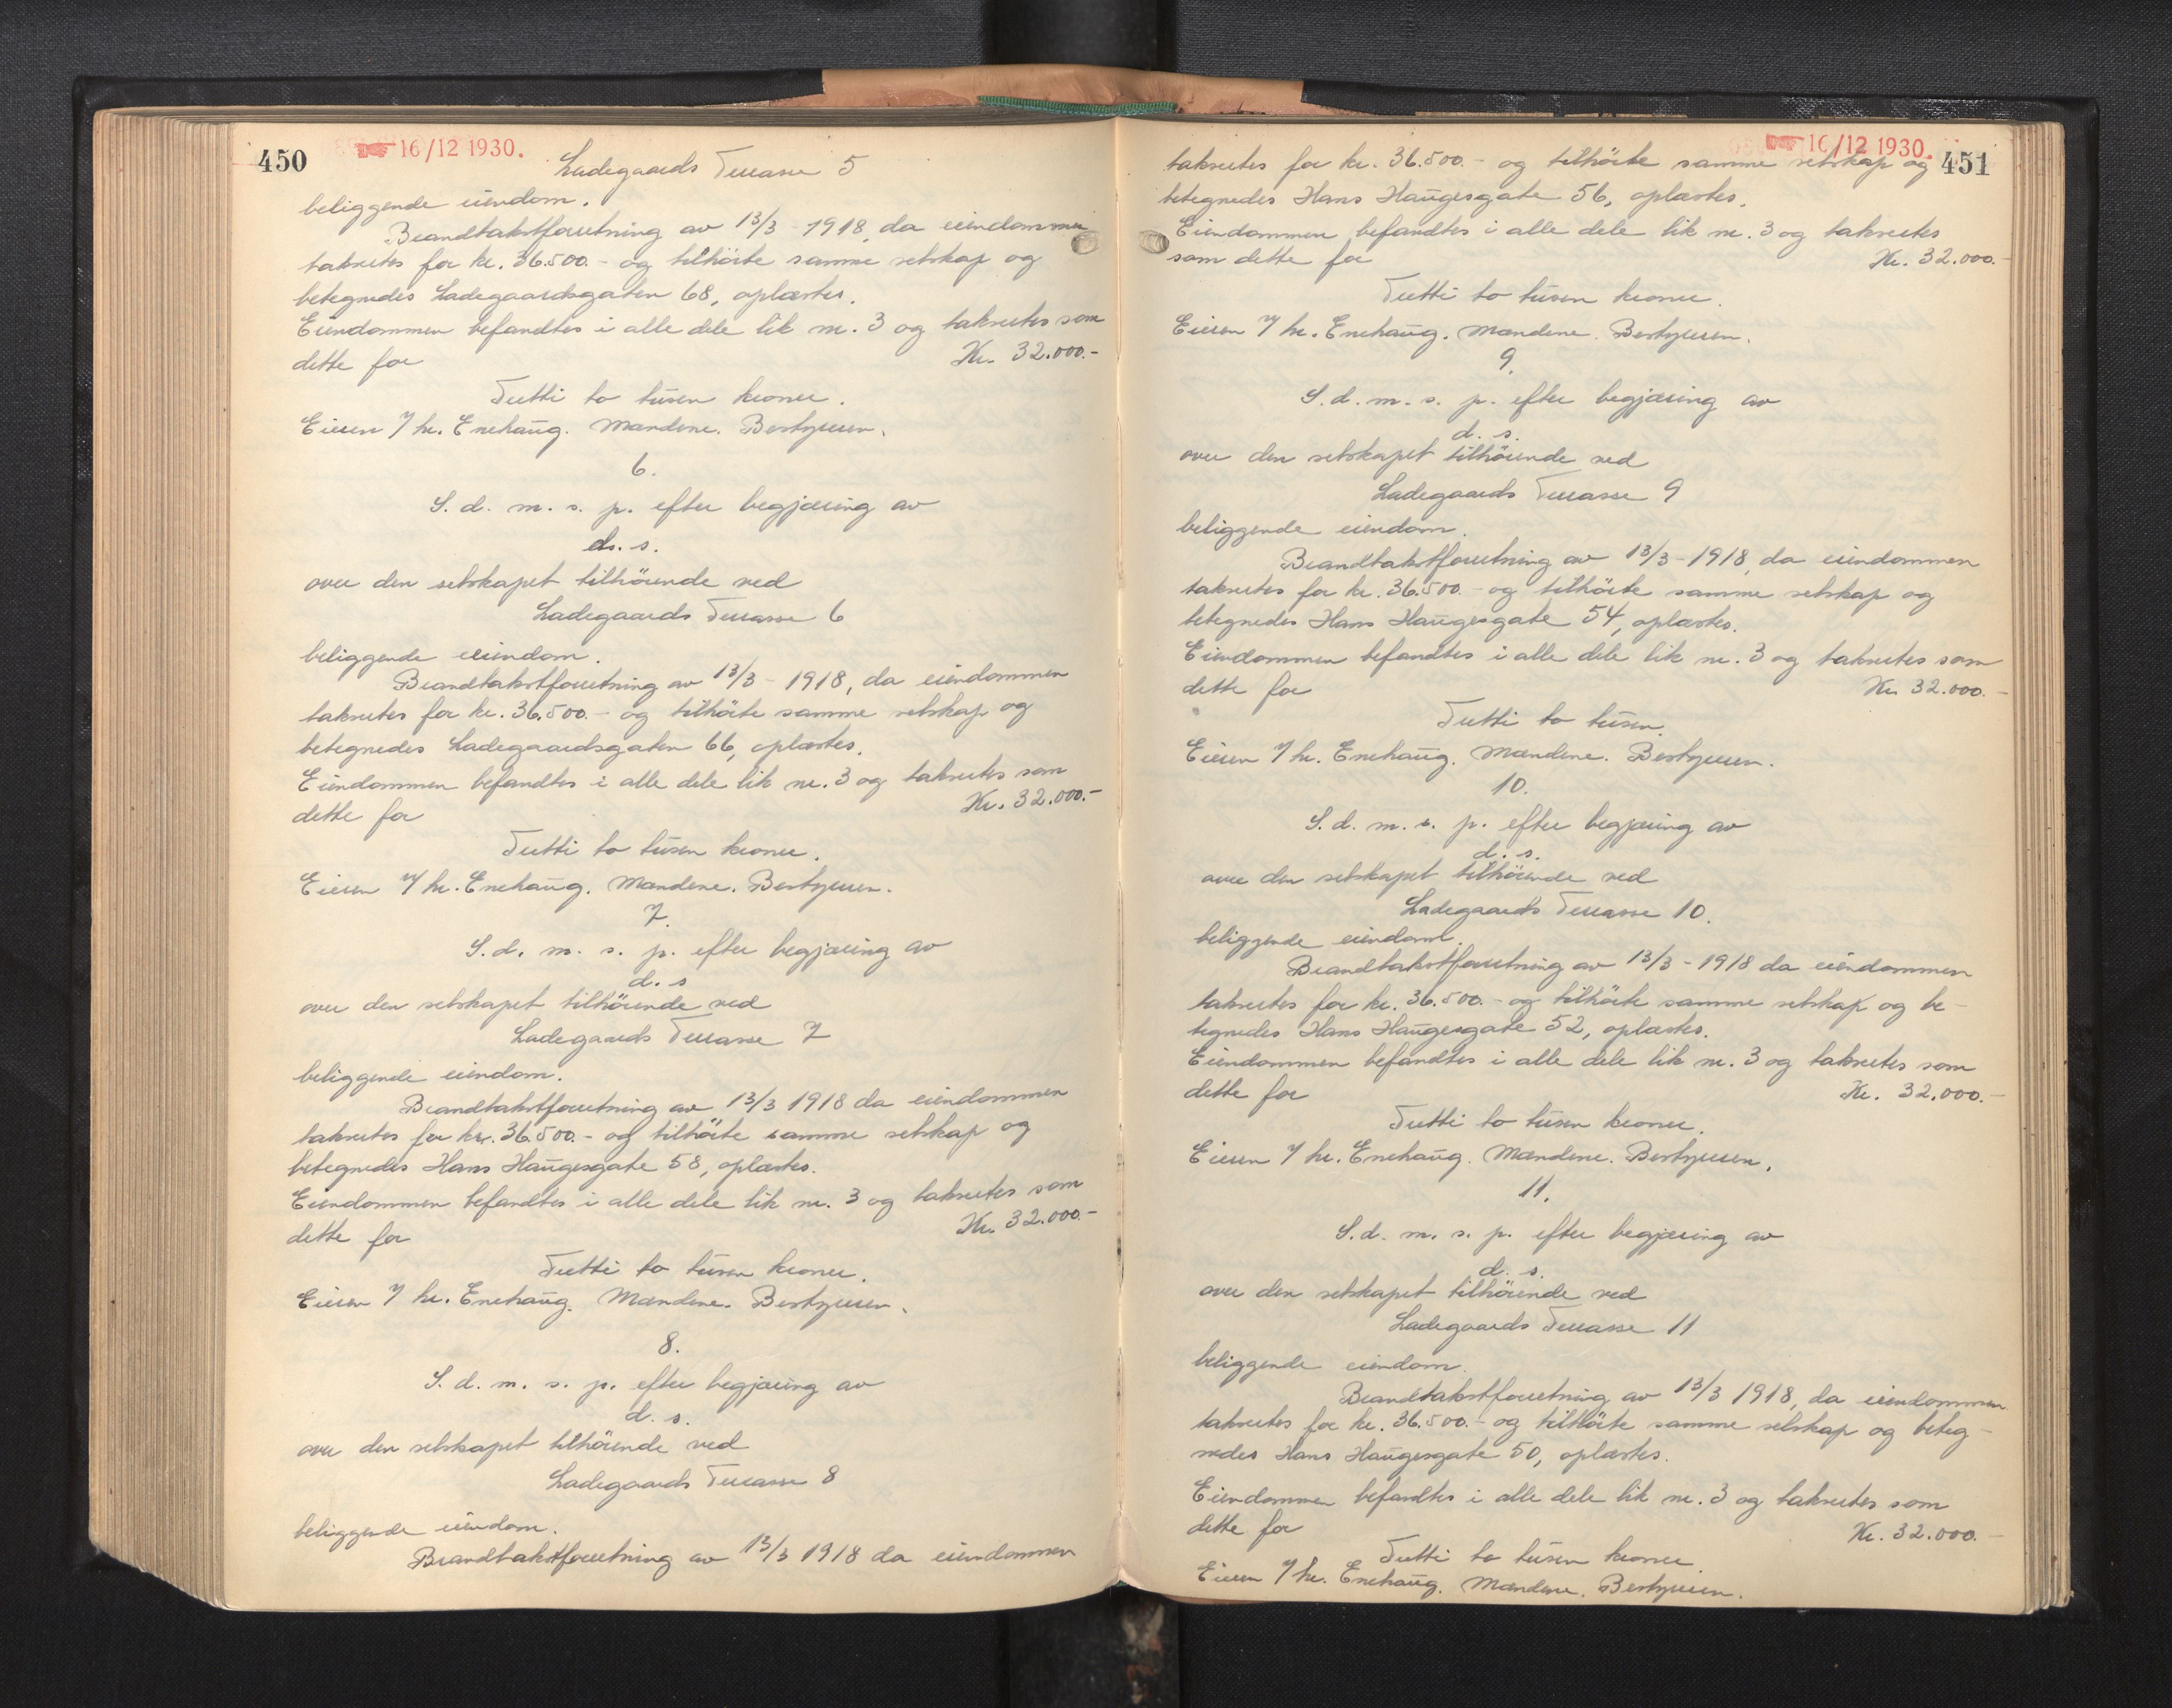 450
16/12 1930.
Ladegaards Terrasse 5
beliggende eiendom.
Brandtakstforretning av 13/3 - 1918, da eiendommen
taksertes for kr. 36.500.- og tilhörte samme selskap og
betegnedes Ladegaardsgaten 68, oplæstes.
Eiendommen befandtes i alle dele lik nr. 3 og taksertes som
dette for Kr. 32.000.-
Tretti to tusen kroner.
Eieren v/ hr. Enehaug. Mændene. Bestyreren.
6.
S. d. m. s. p. efter begjæring av
d. s.
over den selskapet tilhörende ved
Ladegaards Terrasse 6
beliggende eiendom.
Brandtakstforretning av 13/3 - 1918, da eiendommen
taksertes for kr. 36.500.- og tilhörte samme selskap og
betegnedes Ladegaardsgaten 66, oplæstes.
Eiendommen befandtes i alle dele lik nr. 3 og taksertes som
dette for Kr. 32.000.-
Tretti to tusen kroner.
Eieren v/ hr. Enehaug. Mændene. Bestyreren.
7.
S. d. m. s. p. efter begjæring av
d. s
over den selskapet tilhörende ved
Ladegaards Terrasse 7
beliggende eiendom.
Brandtakstforretning av 13/3 1918 da eiendommen
taksertes for kr. 36.500.- og tilhörte samme selskap og
betegnedes Hans Haugesgate 58, oplæstes.
Eiendommen befandtes i alle dele lik nr. 3 og taksertes som
dette for Kr. 32.000.-
Tretti to tusen kroner.
Eieren v/ hr. Enehaug. Mændene. Bestyreren.
8.
S. d. m. s. p. efter begjæring av
d. s.
over den selskapet tilhörende ved
Ladegaards Terrasse 8
beliggende eiendom.
Brandtakstforretning av 13/3 1918 da eiendommen
16/12 1930.
451
taksertes for kr. 36.500.- og tilhörte samme selskap og
betegnedes Hans Haugesgate 56, oplæstes.
Eiendommen befandtes i alle dele lik nr. 3 og taksertes
som dette for Kr. 32.000.-
Tretti to tusen kroner.
Eieren v/ hr. Enehaug. Mændene. Bestyreren.
9.
S. d. m. s. p. efter begjæring av
d. s.
over den selskapet tilhörende ved
Ladegaards Terrasse 9
beliggende eiendom.
Brandtakstforretning av 13/3 - 1918, da eiendommen
taksertes for kr. 36.500.- og tilhörte samme selskap og
betegnedes Hans Haugesgate 54, oplæstes.
Eiendommen befandtes i alle dele lik nr. 3 og taksertes som
dette for Kr. 32.000.-
Tretti to tusen.
Eieren v/ hr. Enehaug. Mændene. Bestyreren.
10.
S. d. m. s. p. efter begjæring av
d. s.
over den selskapet tilhörende ved
Ladegaards Terrasse 10.
beliggende eiendom.
Brandtakstforretning av 13/3 - 1918 da eiendommen
taksertes for kr. 36.500.- og tilhörte samme selskap og be-
tegnedes Hans Haugesgate 52, oplæstes.
Eiendommen befandtes i alle dele lik nr. 3 og taksertes som
dette for Kr. 32.000.-
Tretti to tusen kroner.
Eieren v/ hr. Enehaug. Mændene. Bestyreren.
11.
S. d. m. s. p. efter begjæring av
d. s.
over den selskapet tilhörende ved
Ladegaards Terrasse 11
beliggende eiendom.
Brandtakstforretning av 13/3 1918, da eiendommen
taksertes for kr. 36.500.- og tilhörte samme selskap og beteg-
nedes Hans Haugesgate 50, oplæstes.
Eiendommen befandtes i alle dele lik nr. 3 og taksertes som
dette for Kr. 32.000.-
Tretti to tusen kroner
Eieren v/ hr. Enehaug. Mændene. Bestyreren.